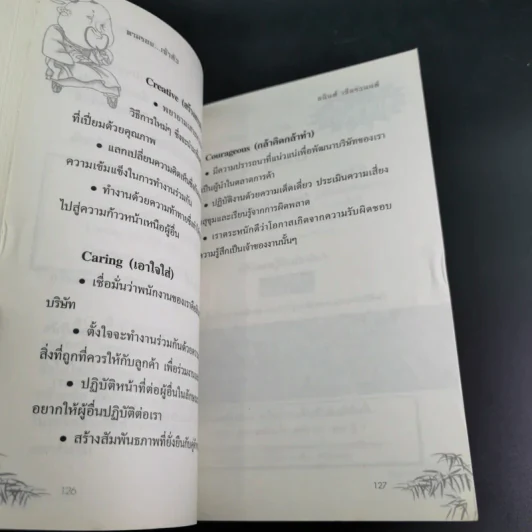 ตามรอย...เจ้าสัว
Creative
• พยายาม
วิธีการใหม่ๆ
ที่เปี่ยมด้วยคุณภาพ
• แลกเปลี่ยนความคิดเห็น
ความเข้มแข็งในการทำงานร่วมกัน
• ทำงานด้วยความท้าทาย
ไปสู่ความก้าวหน้าเหนือผู้อื่น
Caring (เอาใจใส่)
• เชื่อมั่นว่าพนักงานของเรา
บริษัท
• ตั้งใจจะทำงานร่วมกันด้วย
สิ่งที่ถูกที่ควรให้กับลูกค้า เพื่อร่วม
• ปฏิบัติหน้าที่ต่อผู้อื่นใน
อยากให้ผู้อื่นปฏิบัติต่อเรา
• สร้างสัมพันธภาพที่ยั่งยืนกับ
126
Courageous (กล้าคิดกล้าทำ)
• มีความปรารถนาที่แน่วแน่เพื่อพัฒนาบริษัทของเรา
เป็นผู้นำในตลาดการค้า
• ปฏิบัติงานด้วยความเด็ดเดี่ยว ประเมินความเสี่ยง
สุขุมและเรียนรู้จากการผิดพลาด
• เราตระหนักดีว่าโอกาสเกิดจากความรับผิดชอบ
ความรู้สึกเป็นเจ้าของงานนั้นๆ
127